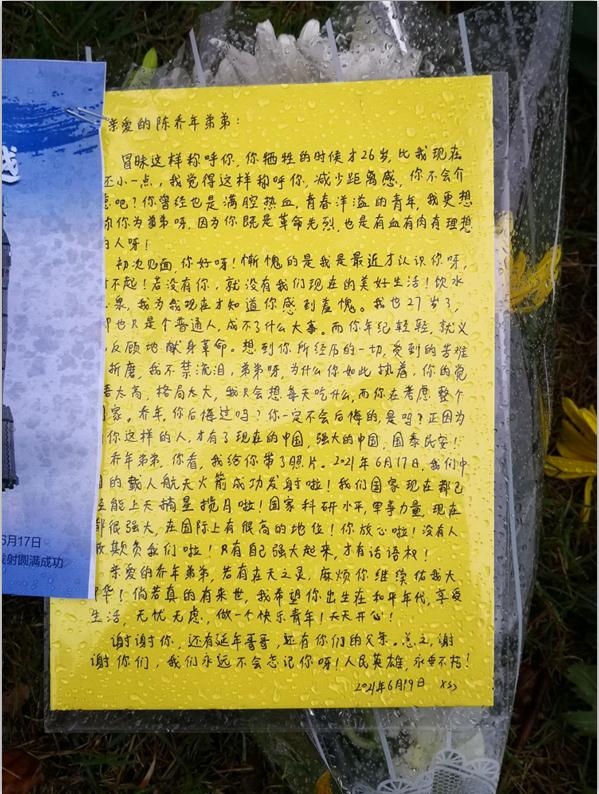 亲爱的陈乔年弟弟：
冒昧这样称呼你，你牺牲的时候才26岁，比我现在
还小一点，我觉得这样称呼你，减少距离感，你不会介
意吧？你曾经也是满腔热血，青春洋溢的青年，我更想
称你为弟弟呀，因为你既是革命先烈，也是有血有肉有理想
的人呀！
初次见面，你好呀！惭愧的是我是最近才认识你呀，
对不起！若没有你，就没有我们现在的美好生活！饮水
思泉，我为我现在才知道你感到羞愧。我也27岁了，
却也只是个普通人，成不了什么大事。而你年纪轻轻，就义
无反顾地献身革命。想到你所经历的一切，受到的苦难
折磨，我不禁流泪，弟弟呀，为什么你如此执着，你的觉
悟太高，格局太大，我只会想每天吃什么，而你在考虑整个
国家。乔年，你后悔过吗？你一定不会后悔的是吗？正因为
你这样的人，才有了现在的中国，强大的中国，国泰民安！
乔年弟弟，你看，我给你带了照片。2021年6月17日，我们中
国的载人航天火箭成功发射啦！我们国家现在都已
经能上天摘星揽月啦！国家科研水平，军事力量，现在
都很强大，在国际上有很高的地位！你放心啦！没有人
敢欺负我们啦！只有自己强大起来，才有话语权！
亲爱的乔年弟弟，若有在天之灵，麻烦你继续佑我大
中华！倘若真的有来世，我希望你出生在和平年代，享受
生活，无忧无虑，做一个快乐青年！天天开心！
谢谢你，还有延年哥哥，还有你们的父亲。总之，谢
谢你们，我们永远不会忘记你呀！人民英雄，永垂不朽！
2021年6月19日 XSS
6月17日
发射圆满成功